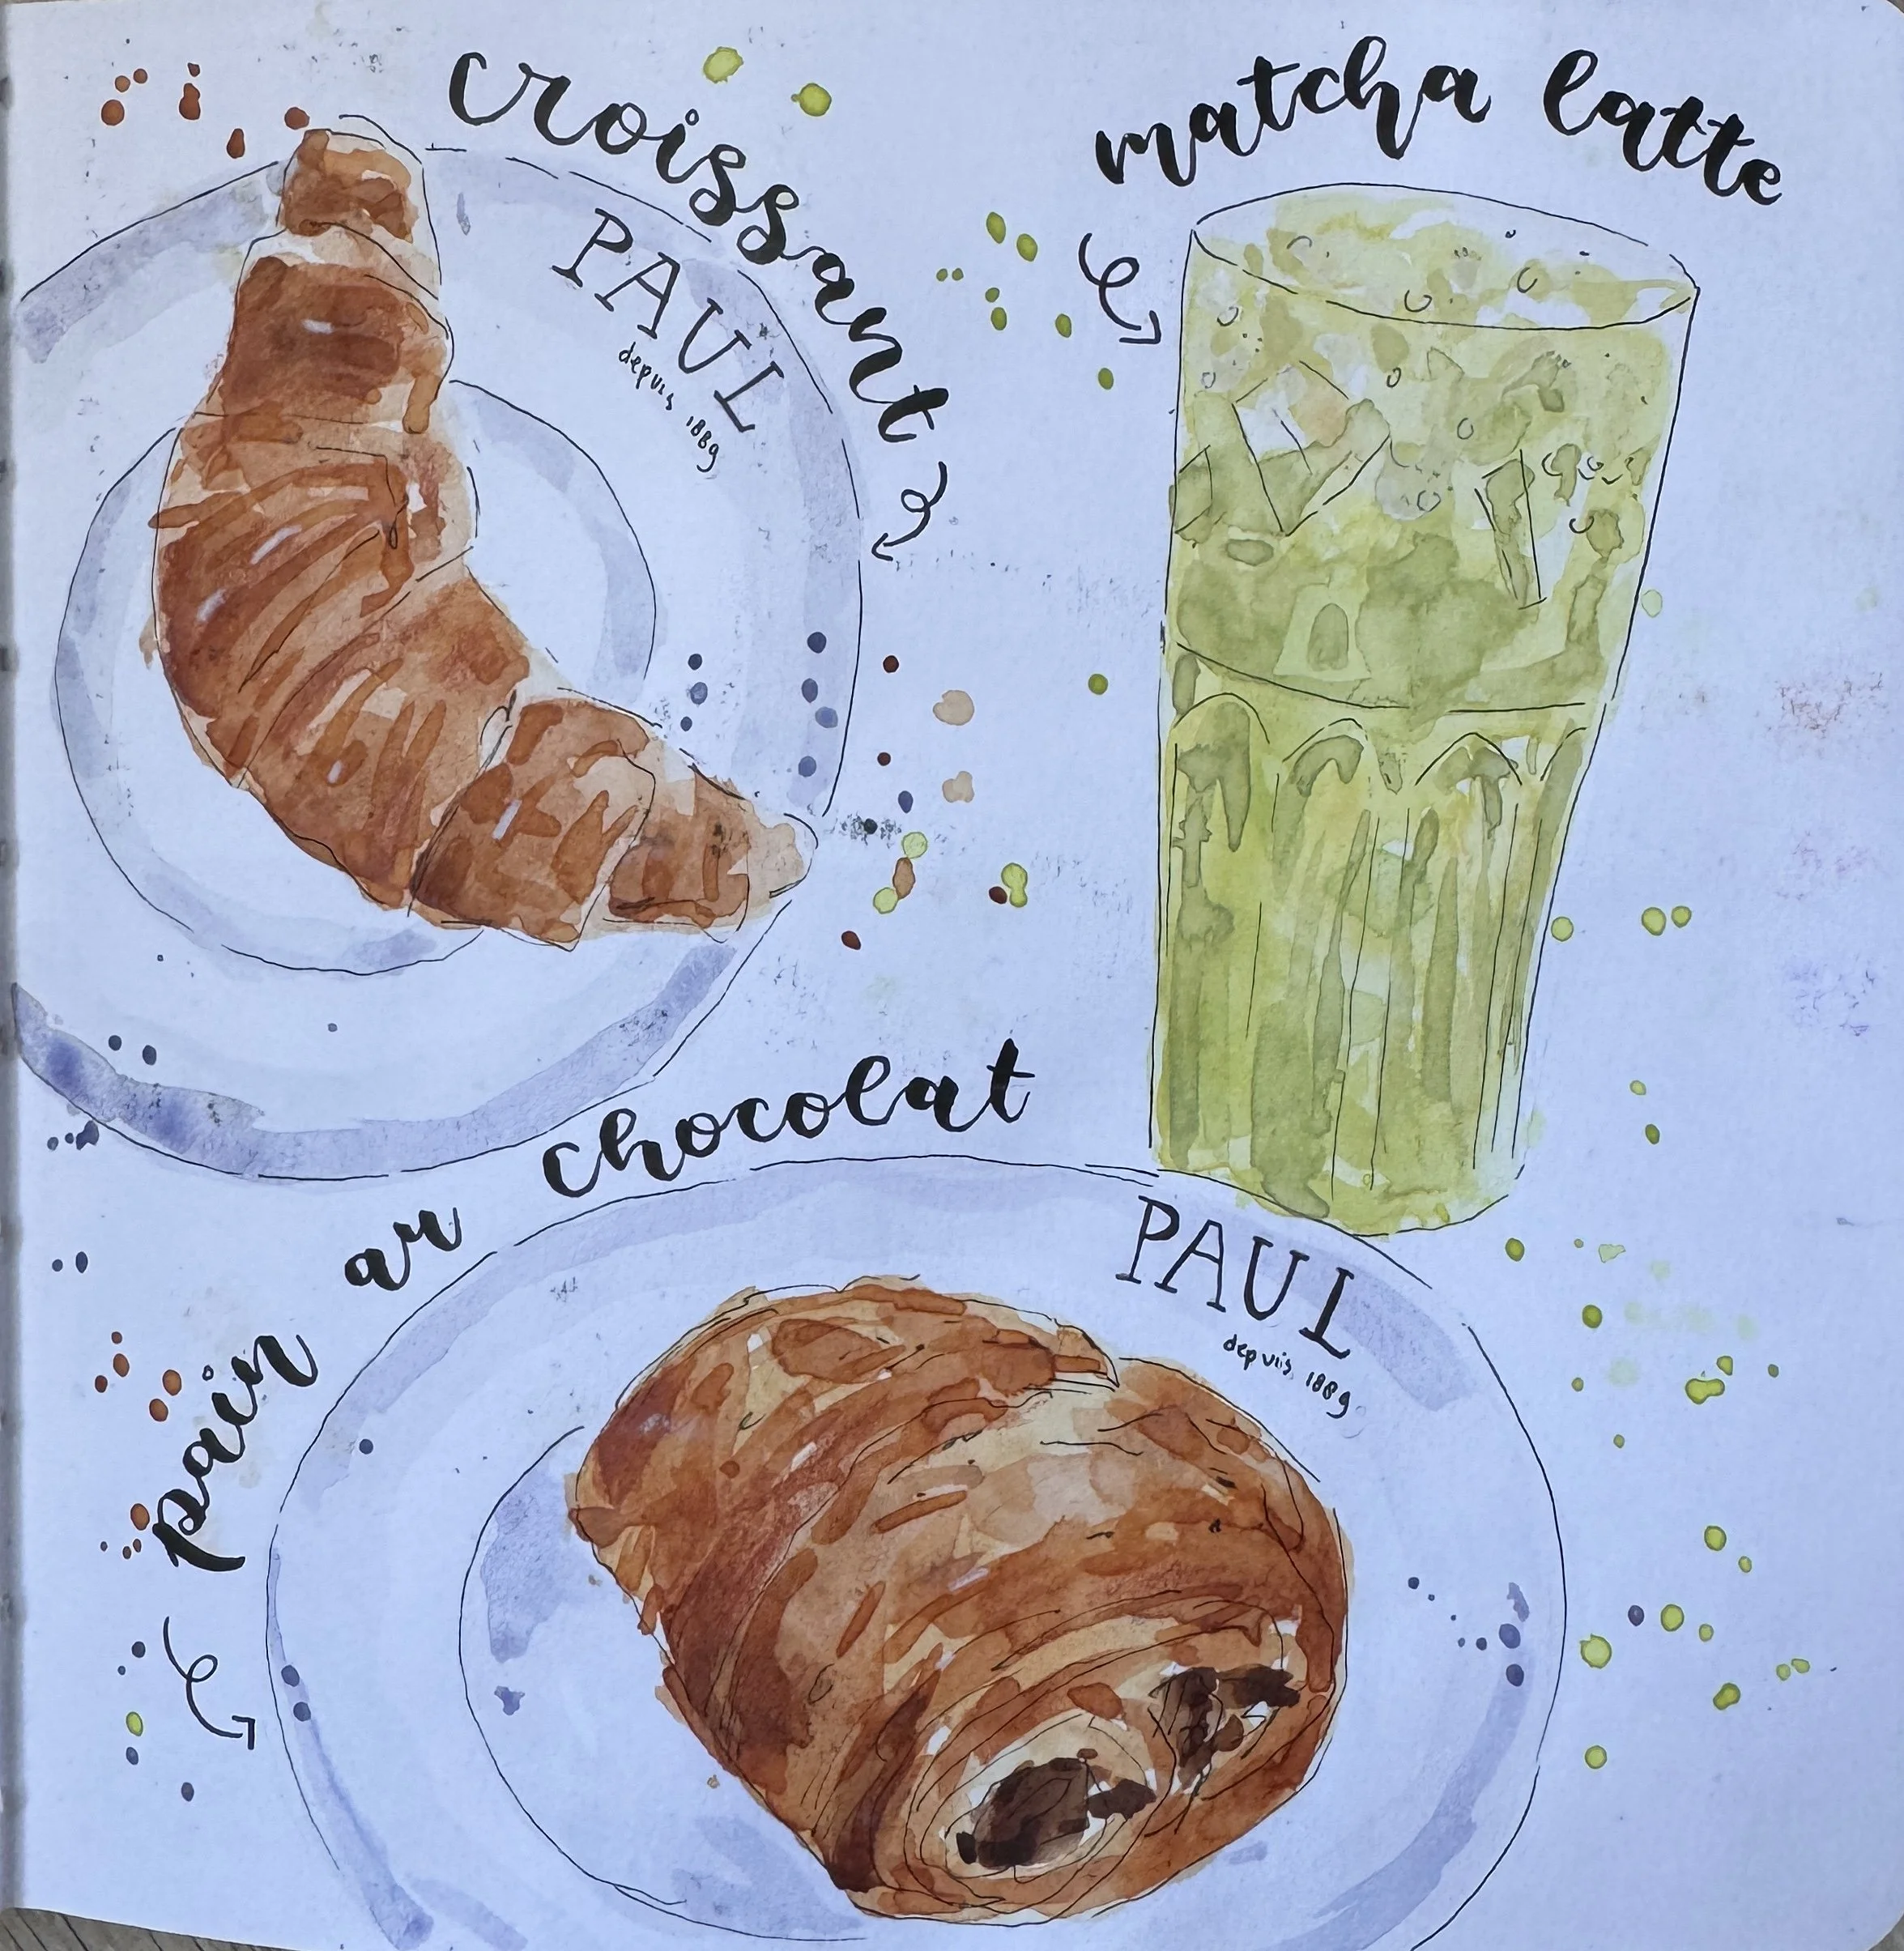 croissant
PAUL
depuis 1889
matcha latte
pain au chocolat
PAUL
depuis 1889